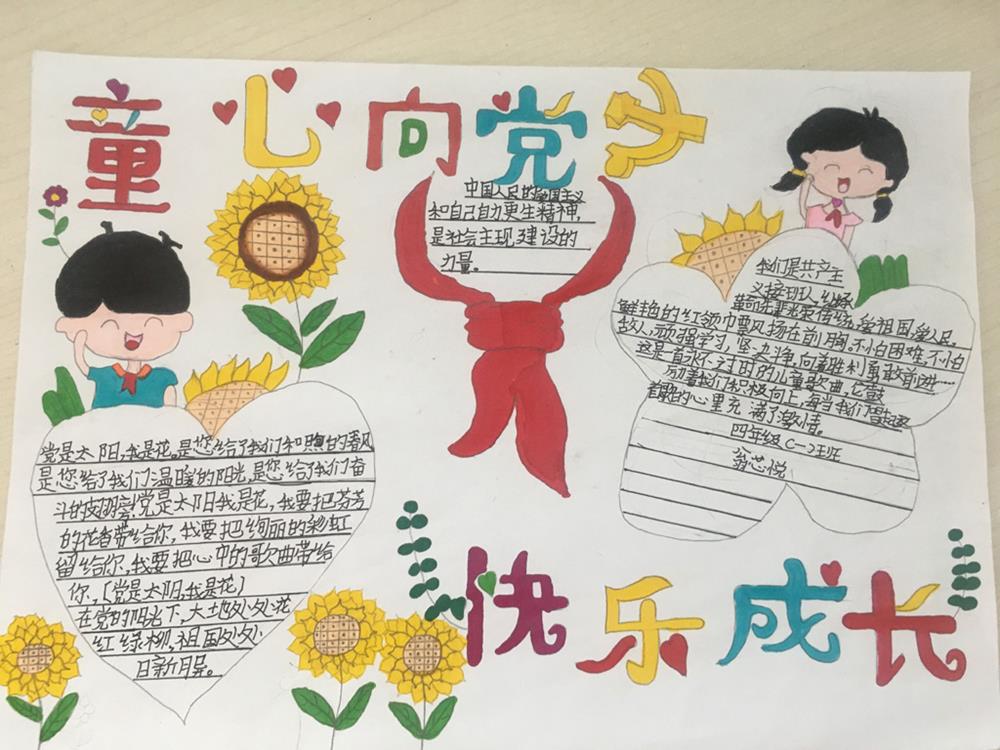 童心向党
中国人民的爱国主义
和自己自力更生精神,
是社会主现建设的
力量。
我们是共产主
义接班人,继承
革命先辈光荣传统,爱祖国,爱人民。
鲜艳的红领巾飘扬在前胸,不怕困难,不怕
敌人,顽强学习,坚决斗争,向着胜利勇敢前进……
这是首永不过时的儿童歌曲,它鼓
励着我们积极向上,每当我们唱起
着的心里充满了激情。
四年级(一)班
翁芯悦
党是太阳,我是花,是您给了我们和煦的春风
是您给了我们温暖的阳光,是您给了我们奋
斗的翅膀,党是太阳我是花,我要把芬芳
的花香带给你,我要把绚丽的彩虹
留给你,我要把心中的歌曲带给
你,(党是太阳,我是花)
在党的阳光下,大地处处花
红绿柳,祖国处处
日新月异。
快乐成长